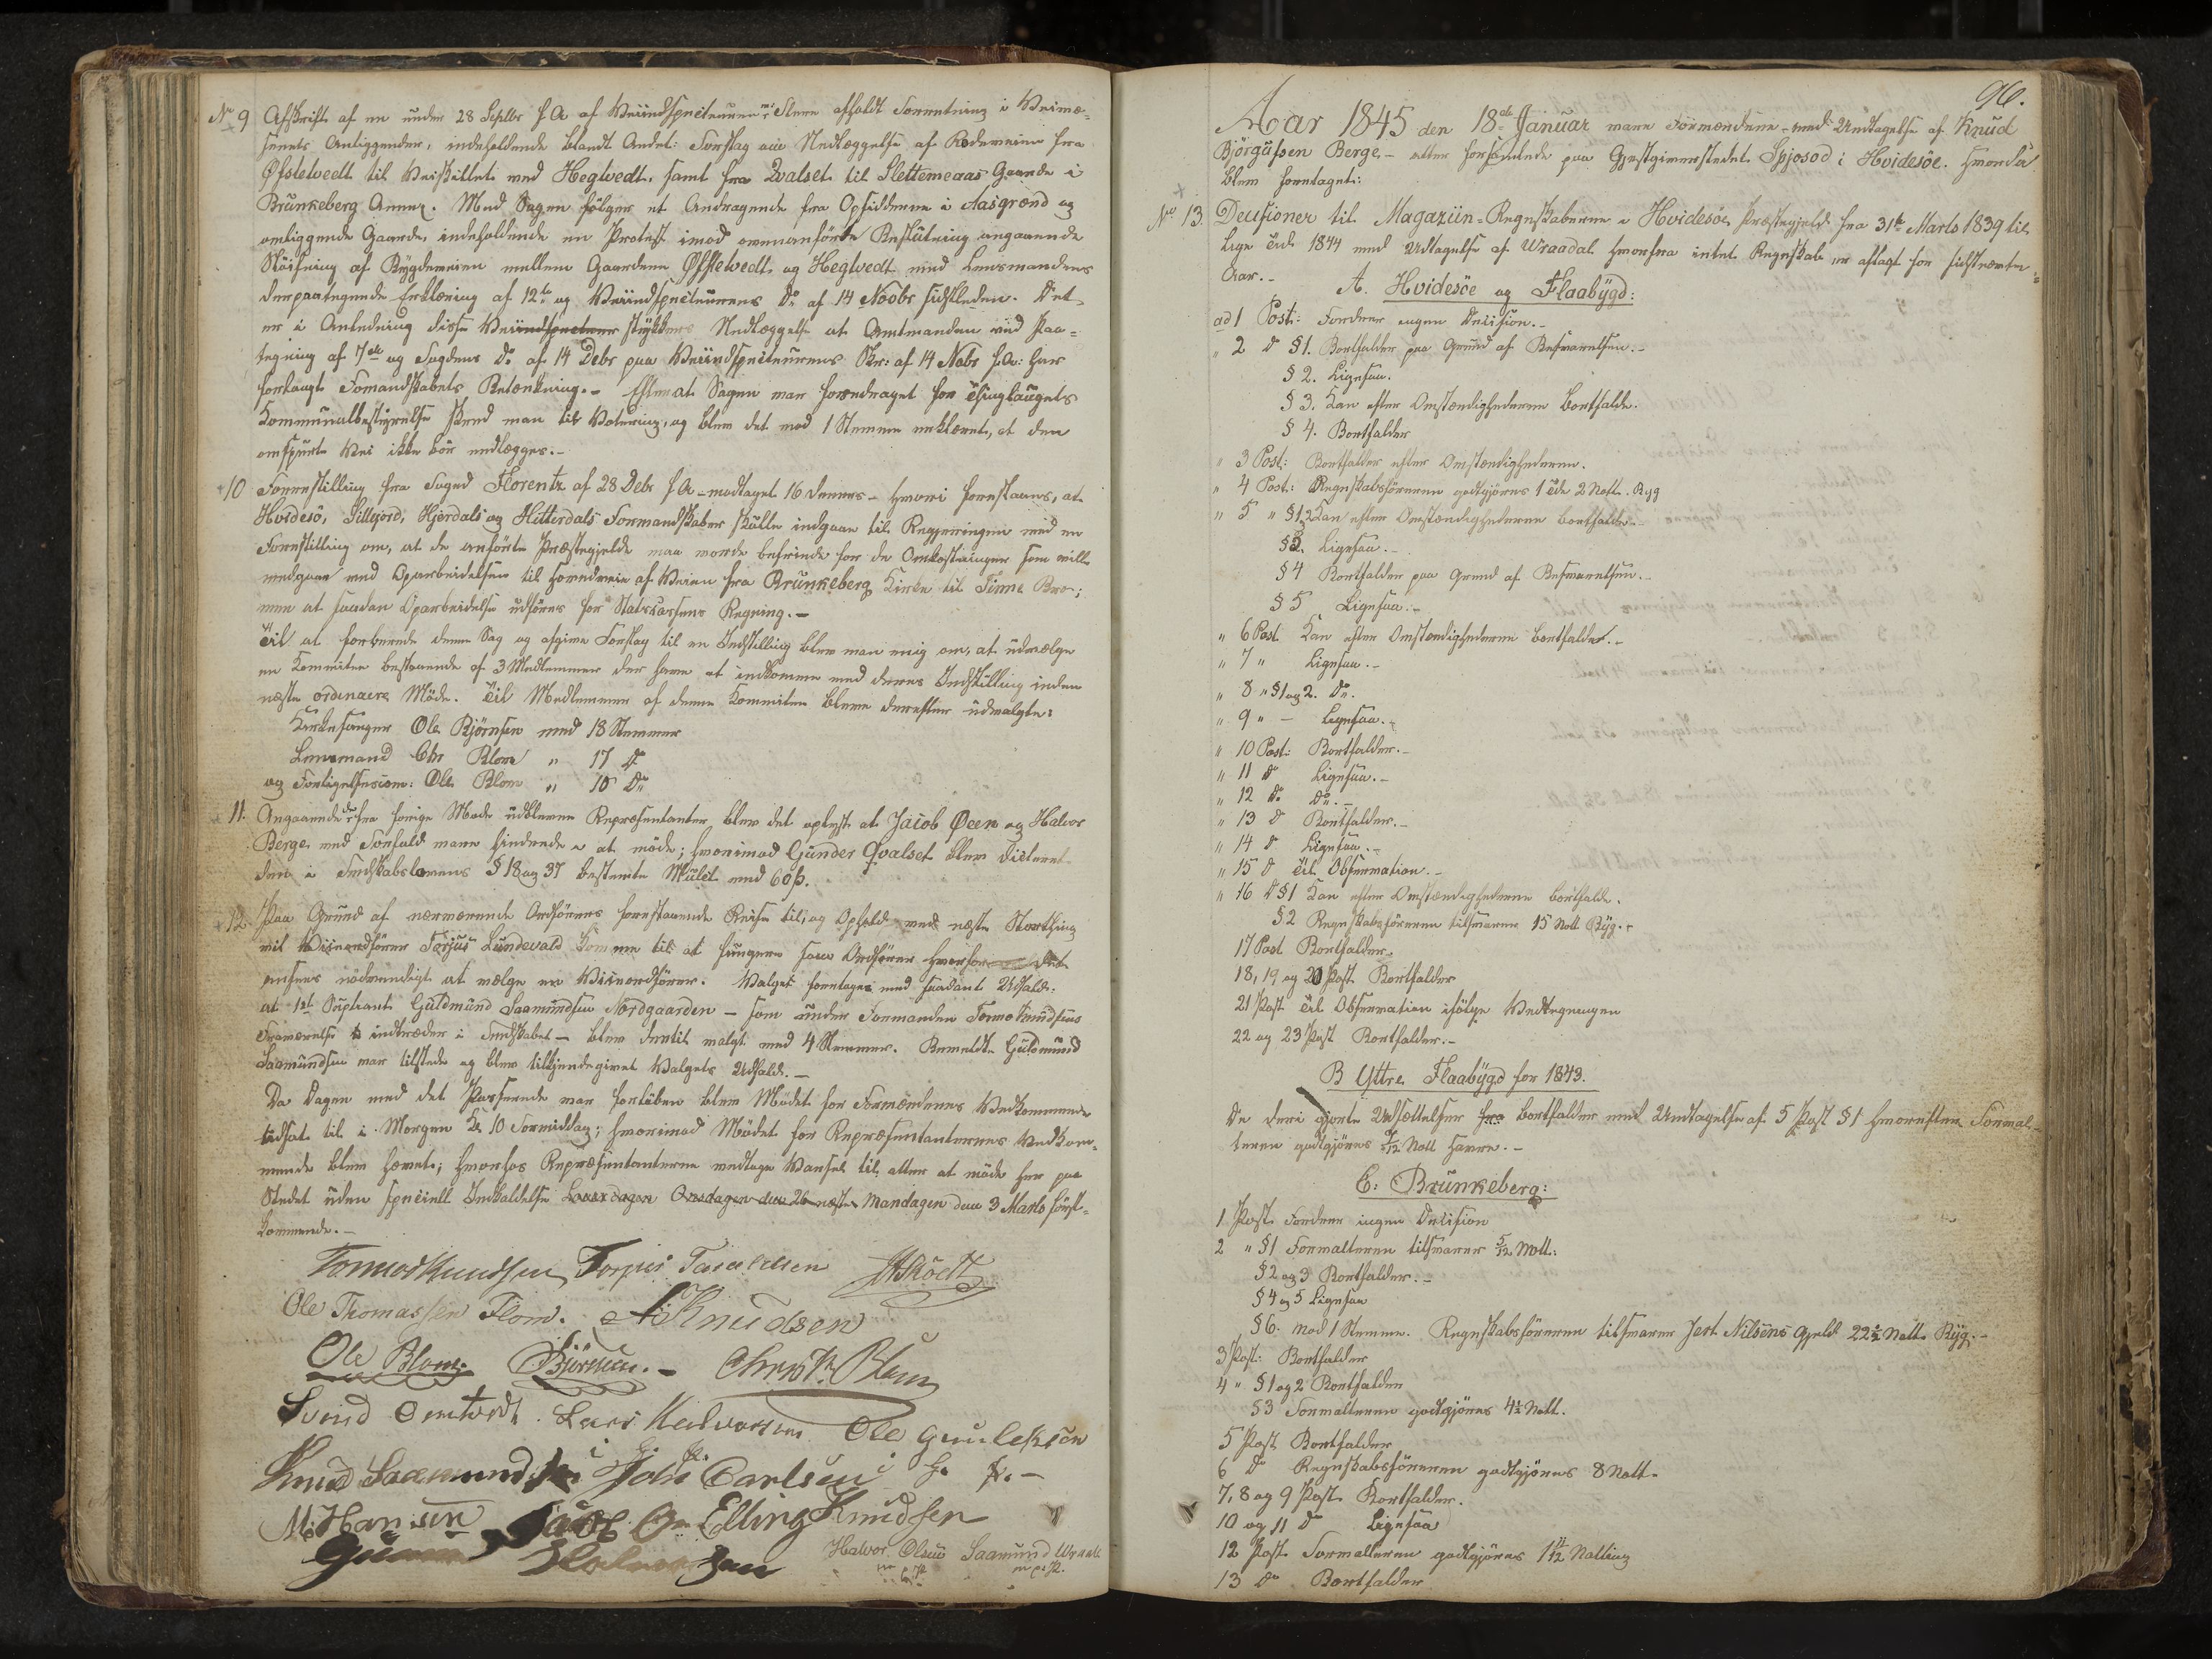 No 9 Afskrift af en under 28 Septbr f. A. af Veiindspecteuren Steen afholdt Forretning i Veivæ-
senets Anliggender, indeholdende blandt Andet: Forslag om Nedlæggelse af Rodeveien fra
Øfstetvedt til Veiskillet ved Hegtvedt, samt fra Qvalset til Slettemeaas Gaarde i
Brunkeberg Annex. Med Sagen følger et Andragende fra Opsidderne i Aasgrend og
omliggende Gaarde, indeholdende en Protest imod ovenanførte Beslutning angaaende
Sløifning af Bygdeveien mellem Gaardene Øfstetvedt og Hegtvedt med Lensmandens
derpaategnede Erklæring af 12te og Veiindspecteurens Do af 14 Novbr sidstleden. Det
er i Anledning disse Veiindspecteur stykkers Nedlæggelse at Amtmanden ved Paa-
tegning af 7de og Fogdens Do af 14 Debr paa Veiindspecteurens Skr: af 14 Nobr f. A: har
forlangt Formandskabets Betænkning.- Efterat Sagen var foredraget for Thinglaugets
Kommunalbestyrelse skred man til Votering, og blev det mod 1 Stemme erklæret, at den
omspurte Vei ikke bør nedlægges.-
10 Forestilling fra Foged Florentz af 28 Debr f A - modtaget 16 dennes - hvori foreslaaes, at
Hvidesö, Sillejord, Hjerdals og Hitterdals Formandskaber skulle indgaae til Regjeringen med en
Forestilling om, at de anførte Præstegjelde maa vorde befriede for de Omkostninger som ville
medgaae ved Oparbeidelsen til Hovedvei af Veien fra Brunkeberg Kirke til Tinne Bro;
men at saadan Oparbeidelse udføres for Statscassens Regning.-
Til at forberede denne Sag og afgive Forslag til en Indstilling blev man enig om, at udvælge
en Kommitee bestaaende af 3 Medlemmer der have at indkomme med deres Indstilling inden
næste ordinaere Møde. Til Medlemmer af denne Kommitee bleve derefter udvalgte:
Kirkesanger Ole Bjørnsen med 18 Stemmer
Lensmand Chr Blom " 17 Do
og Forligelsescom: Ole Blom " 10 Do
11. Angaaende de fra forrige Møde udblevne Repræsentanter, blev det oplyst at Jacob Øeen og Halvor
Berge ved Forfald vare hindrede i at møde; hvorimod Gunder Qvalset blev dicteret
den i Formandskabslovens § 18 og 37 bestemte Mulct med 60 ß.
12. Paa Grund af nærværende Ordførers forestaaende Reise til og Ophold ved næste Storthing
vil Viceordfører Tarjus Lundevald komme til at fungere som Ordfører hvorfor det
ansees nødvendigt at vælge en Viceordfører. Valget foretoges med saadant Udfald:
at 1st Supleant Guldmund Saamundsen Nordgaarden - som under Formanden Tormo Knudsens
Fraværelse indtræder i Formandskabet - blev dertil valgt med 4 Stemmer. Bemeldte Guldmund
Saamundsen var tilstede og blev tilkjendegivet Valgets Udfald.-
Da Dagen med det Passerede var forløben blev Mødet for Formændenes Vedkommende
udsat til i Morgen Kl 10 Formiddag; hvorimod Mødet for Repræsentanternes Vedkom-
mende blev hævet; hvorhos Repræsentanterne vedtoge Varsel til atter at møde her paa
Stedet uden speciell Indkaldelse Onsdagen den 26 næste Mandagen den 3 Marts først-
kommende.-
Tormod Knudsen Torjus
Ole Thomassen Flom. A Knudsen
Ole Blom. OBjörnsen.- Christ. Blom
Svend Lars Halvorsen Ole Gunleksen
Knud Saamundsen John Carlsen i h. P.-
M. Hansen Elling Knudsen
Gunder Halvorsen Halvor Olsen Saamund Wraal
m. p. P. m. p. P.
96.
Aar 1845 den 18de Januar vare Formændene - med Undtagelse af Knud
Björgufsen Berge - atter forsamlede paa Gjestgiverstedet Spjosod i Hvidesöe. Hvorda
blev foretaget:
No 13. Decisioner til Magazin-Regnskaberne i Hvidesöe Præstegjeld fra 31te Marts 1839 til
lige Tid 1844 med Udtagelse af Wraadal hvorfra intet Regnskab er aflagt for sidstnævnte
Aar.-
A. Hvidesöe og Flaabÿgd:
ad 1 Post: Fordrer ingen Decision.-
" 2 Do §1. Bortfalder paa Grund af Besvarelsen.-
§ 2. Ligesaa.
§ 3. Kan efter Omstændighederne bortfalde.
§ 4. Bortfalder
" 3 Post: Bortfalder efter Omstændighederne.
" 4 Post: Regnskabsføreren godtgjøres 1 Tde 2 Nott. Byg
" 5 " §1,2 Kan efter Omstændighederne bortfalde.-
§3. Ligesaa.-
§4 Bortfalder paa Grund af Besvarelsen.-
§ 5 Ligesaa.-
" 6 Post Kan efter Omstændighederne bortfalde.-
" 7 " Ligesaa.-
" 8 " §1 og 2. Do.
" 9 " - Ligesaa.-
" 10 Post: Bortfalder.-
" 11 Do Ligesaa.-
" 12 Do Do.-
" 13 Do Bortfalder.-
" 14 Do Ligesaa.-
" 15 Do Til Observation.-
" 16 Do §1 Kan efter Omstændighederne bortfalde.
§ 2 Regnskabsføreren tilsvarer 15 Nott Byg.-
17 Post Bortfalder.
18, 19 og 20 Post Bortfalder
21 Post Til Observation ifølge Vedtegningen
22 og 23 Post Bortfalder.-
B Yttre Flaabÿgd for 1843.
De deri gjorte Udsættelser bortfalder med Undtagelse af 5 Post §1 hvorefter Formal-
teren godtgjøres Nott Havre.-
C: Brunkeberg:
1 Post Fordrer ingen Decision
2 " §1 Formalteren tilsvarer 5/12 Nott:
§2 og 3 Bortfalder.-
§ 4 og 5 Ligesaa
§ 6. mod 1 Stemme. Regnskabsføreren tilsvarer Jert Nilsens Gjeld 22½ Nott. Byg.-
3 Post: Bortfalder
4 " §1 og 2 Bortfalder
§3 Formalteren godtgjøres 4½ Nott.
5 Post Bortfalder
6 Do Regnskabsføreren godtgjøres 8 Nott.
7, 8 og 9 Post Bortfalder.
10 og 11 Do Ligesaa
12 Post Formalteren godtgjøres Notting
13 Do Bortfalder